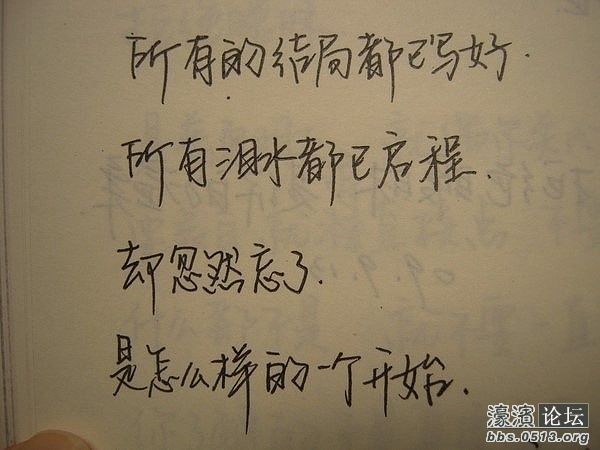 所有的结局都已写好.
所有泪水都已启程.
却忽然忘了.
是怎么样的一个开始.
濠滨论坛
bbs.0513.org